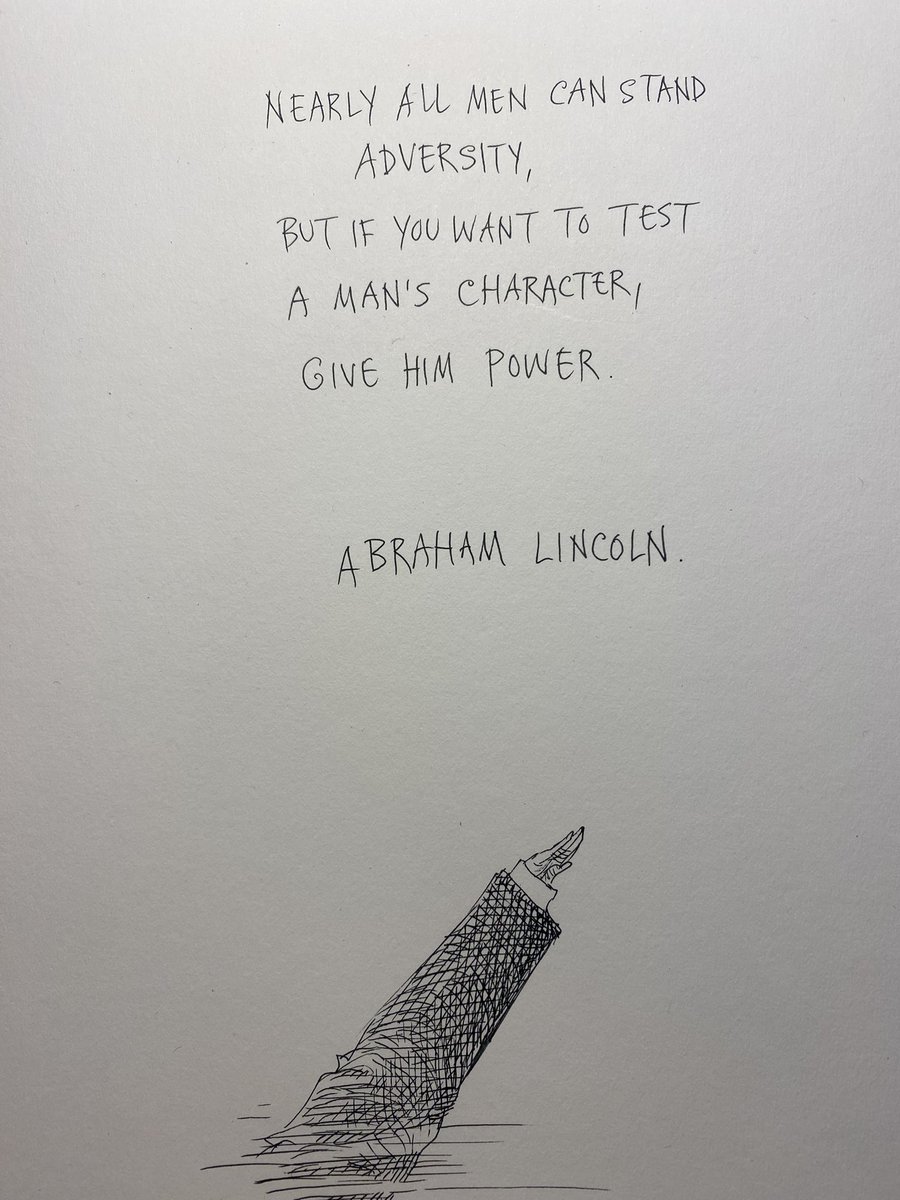 NEARLY ALL MEN CAN STAND
ADVERSITY,
BUT IF YOU WANT TO TEST
A MAN'S CHARACTER,
GIVE HIM POWER.
ABRAHAM LINCOLN.